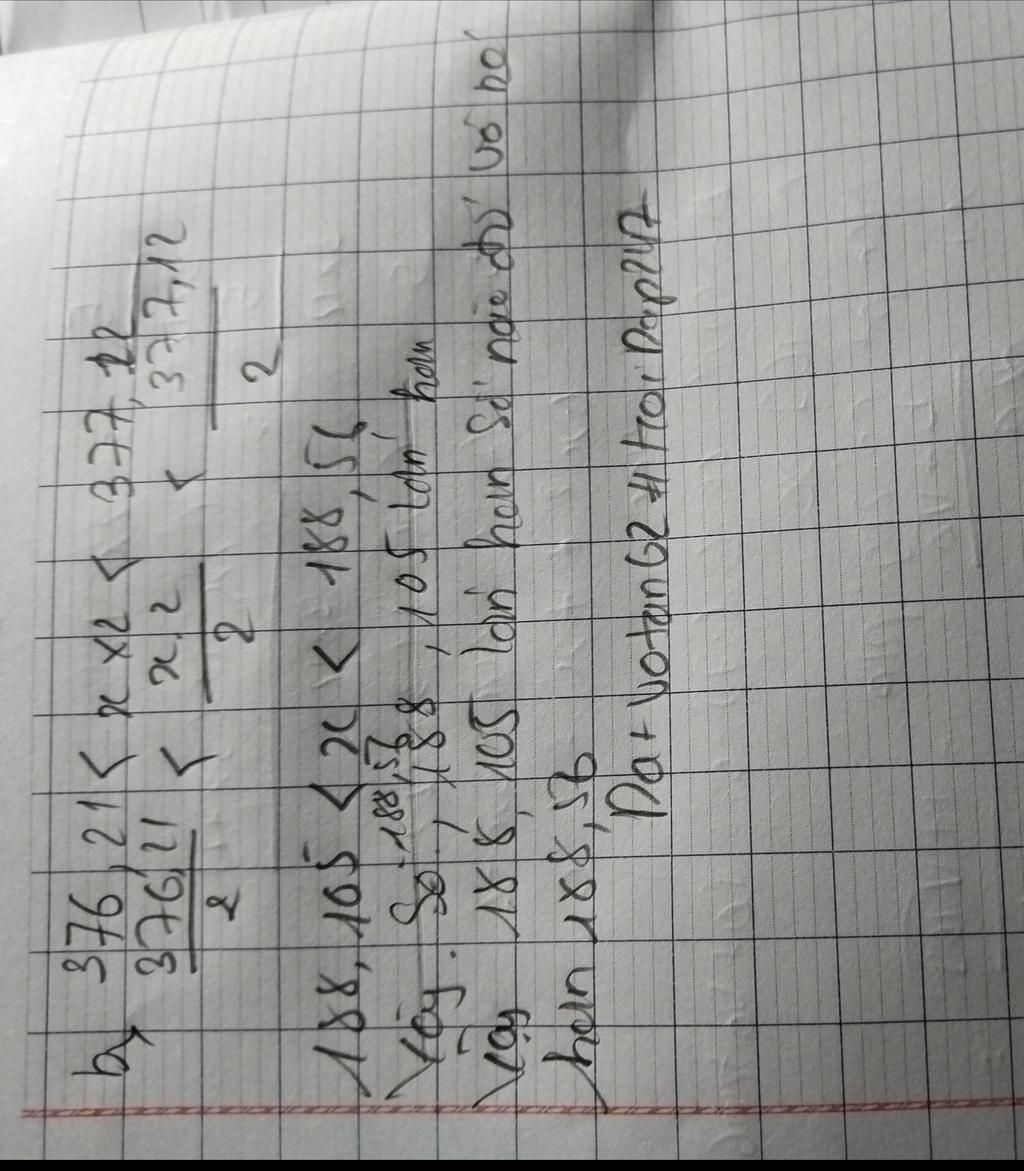 b, 376,21 < x × 2 < 377,12
376,21 / 2 < x.2 / 2 < 377,12 / 2
188,105 < x < 188,56
188,56
Vậy. Số , 188,105 lớn hơn
Vậy 188,105 lớn hơn số nào đó vó hỏ
hơn 188,56
Dat votan62 # traiDap247